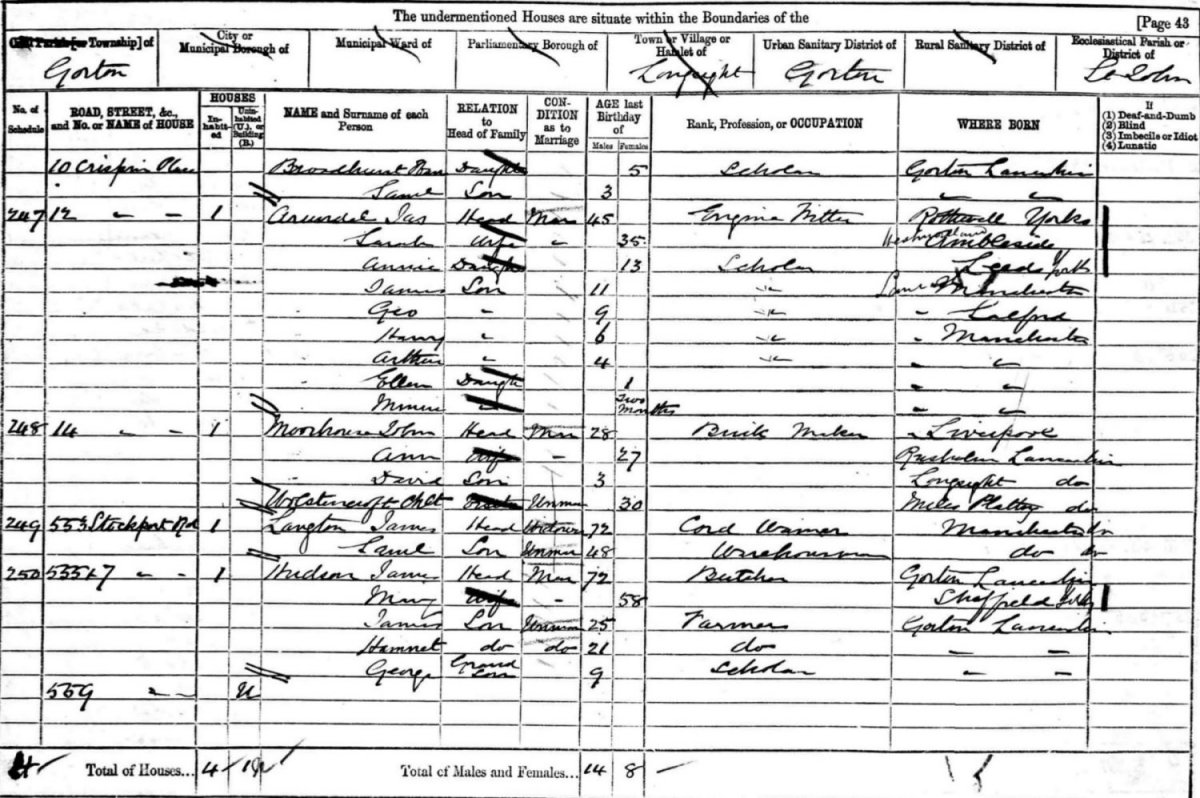 The undermentioned Houses are situate within the Boundaries of the
[Page 43
Civil Parish [or Township] of
City or Municipal Borough of
Municipal Ward of
Parliamentary Borough of
Town or Village or Hamlet of
Urban Sanitary District of
Rural Sanitary District of
Ecclesiastical Parish or District of
Gorton Longsight Gorton St John
No. of Schedule
ROAD, STREET, &c., and No. or NAME of HOUSE
HOUSES
In-habit-ed
Unin-habited (U.), or Building (B.)
NAME and Surname of each Person
RELATION to Head of Family
CON-DITION as to Marriage
AGE last Birthday of
Males Females
Rank, Profession, or OCCUPATION
WHERE BORN
If
(1) Deaf-and-Dumb
(2) Blind
(3) Imbecile or Idiot
(4) Lunatic
10 Crispin Broadhurst Daught 5 Scholar Gorton Lancashire
Saml Son 3 " "
247 12 " - 1 Arundel Jas Head Mar 45 Engine Fitter Rothwell Yorks
Sarah Wife " 35 Westmorland Ambleside
Annie Daught 13 Scholar Leeds Yorks
James Son 11 " Manchester
Geo " 9 " " Salford
Harry " 6 " " Manchester
Arthur " 4 " " "
Ellen Daught 1 " "
Two Months " "
248 14 " - 1 Moorhouse John Head Mar 28 Brick Maker " Liverpool
Ann Wife - 27 Rusholme Lancashire
David Son 3 Longsight do
Wolstencroft Unmar 30 Miles Platting do
249 553 Stockport Rd 1 Langton James Head Widower 72 Cord Manchester do
Saml Son Unmar 48 Warehouseman do do
250 555 & 7 " - 1 Hudson James Head Mar 72 Butcher Gorton Lancashire
Mary Wife - 58 Sheffield Yorks
James Son Unmar 25 Farmer Gorton Lancashire
Hamnet do do 21 do - -
George Grand Son 9 Scholar - -
559 " - U
4 Total of Houses... 4 1U Total of Males and Females... 14 8